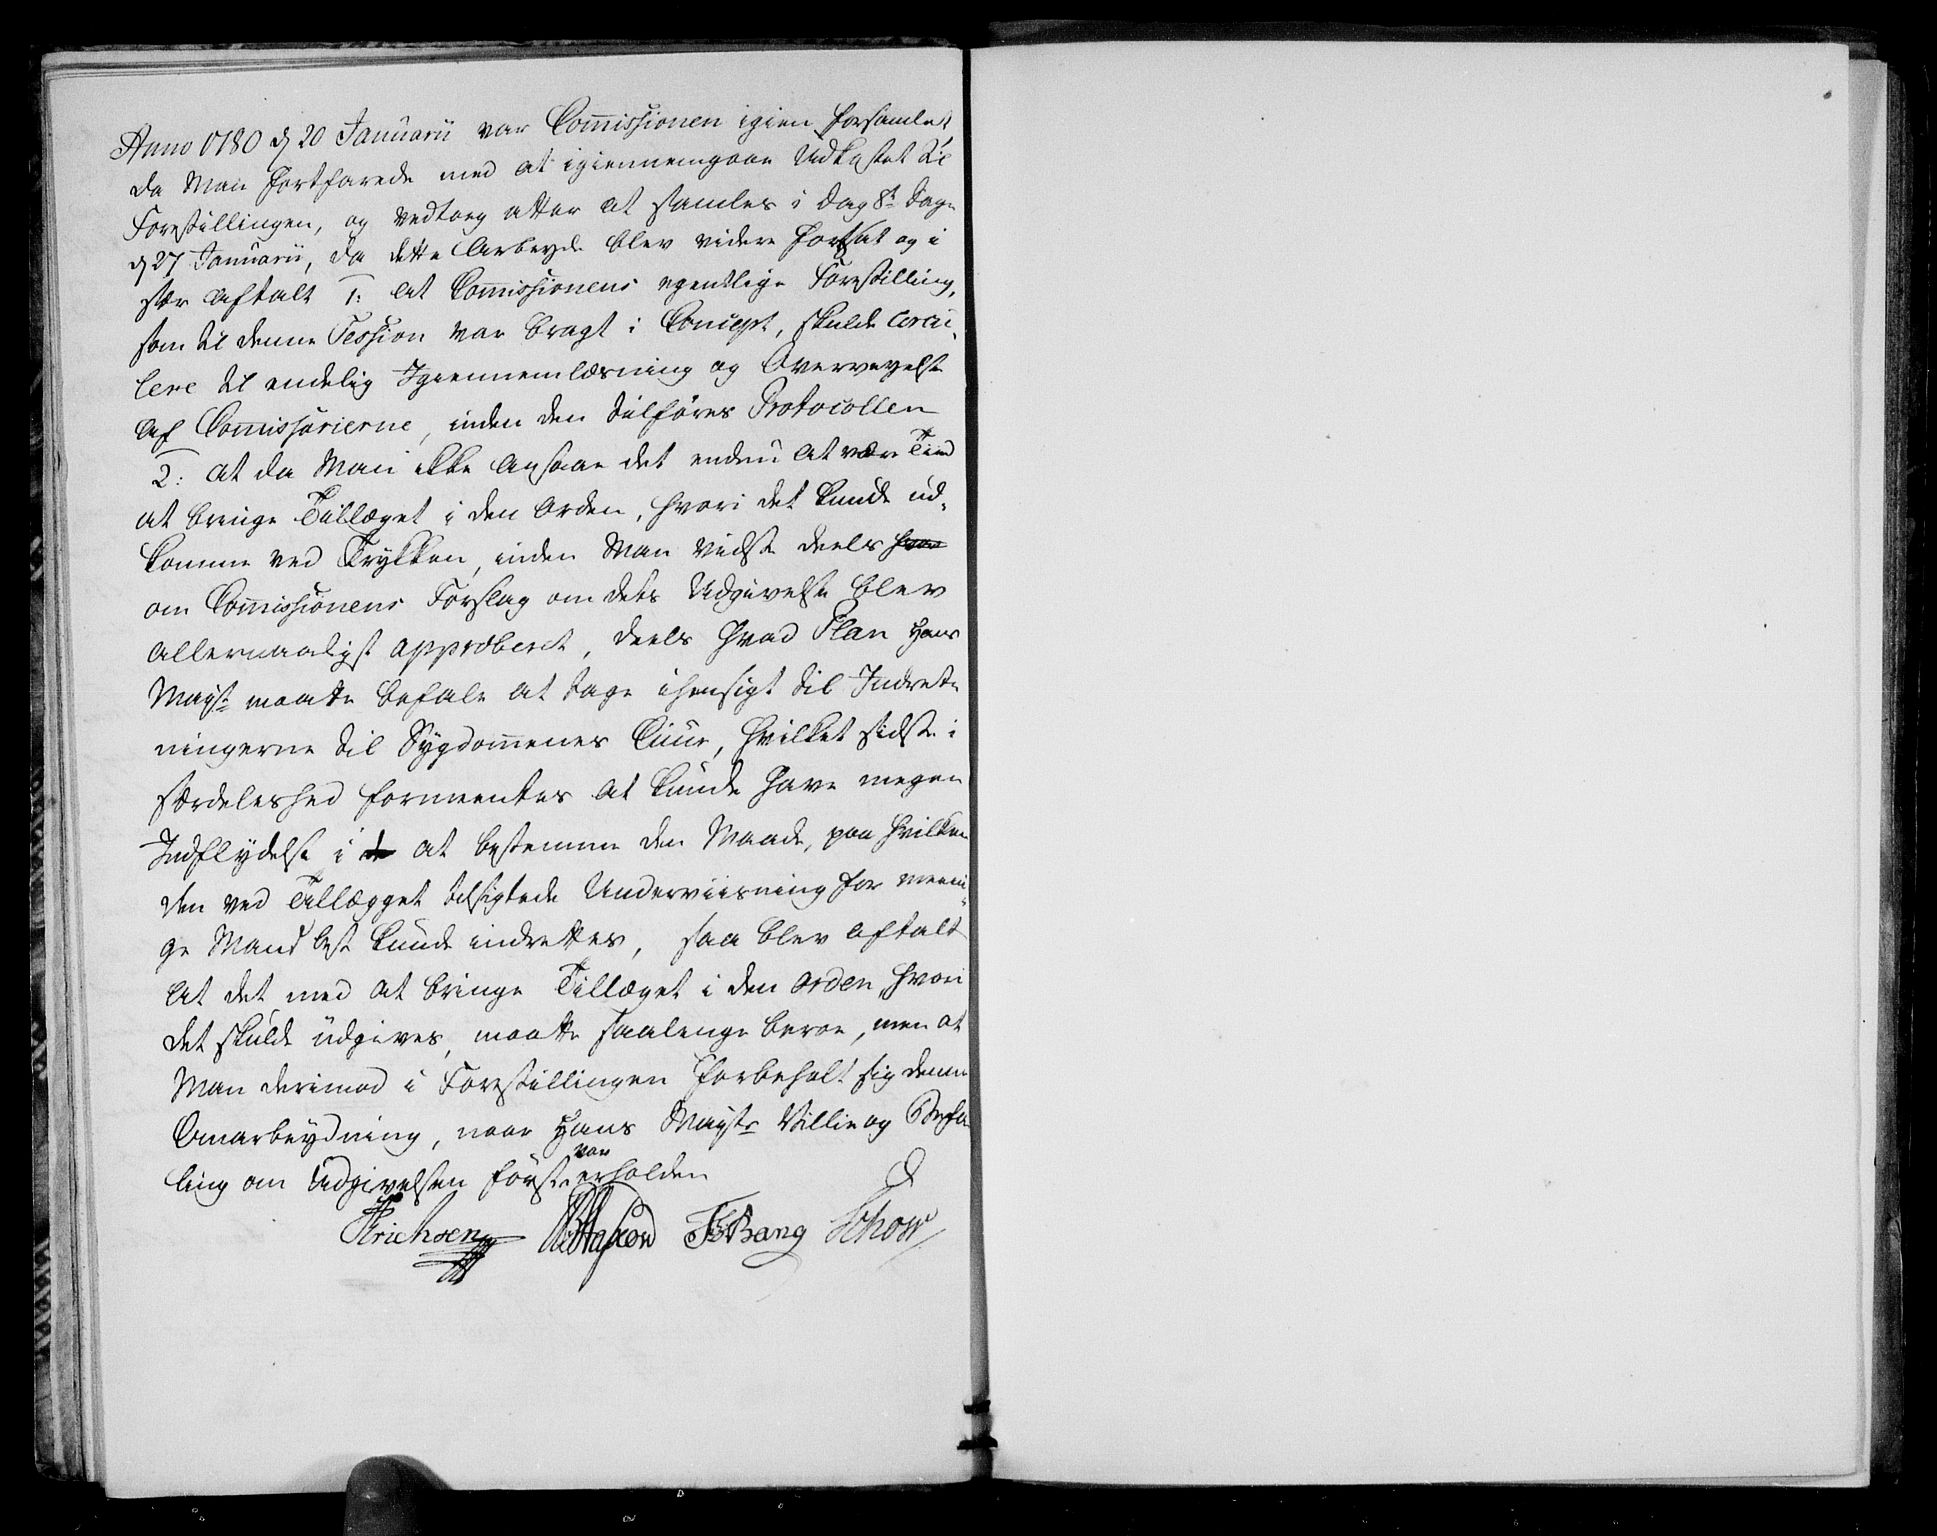 Anno 1780 d 20 Januarii var Commissionen igien forsamlet,
da Man fortfarede med at igiennemgaae Udkastet til
Forestillingen, og vedtoeg atter at samles i dag 8te dage
d 27 Januarii, da dette Arbeyde blev videre fortsat og i
sær aftalt 1: at Commissionens egentlige Forestilling,
som til denne Session var bragt i Concept, skulde circu-
lere til endelig Igiennemlæsning og Overveyelse
af Commissarierne, inden den tilføres Protocollen
2: at da Man ikke ansaae det endnu at være Tiid
at bringe Tillæget i den Orden, hvori det kunde ud-
komme ved Trykken, inden Man vidste deels
om Commissionens Forslag om dets Udgivelse blev
allernaadigst approberet, deels hvad Plan Hans
Mayst maatte befale at tage ihensigt til Indret-
ningerne til Sygdommenes Cuur, hvilket sidste i
særdeleshed formeentes at kunde have megen
Indflydelse i at bestemme den Maade, paa hvilken
den ved Tillægget tilsigtede Underviisning for meeni-
ge Mand best kunde indrettes, saa blev aftalt
at det med at bringe Tillæget i den Orden, hvori
det skulde udgives, maatte saalenge beroe, men at
Man derimod i Forestillingen forbeholt sig denne
Omarbeydning, naar Hans Maysts Villie og Befa-
ling om Udgivelsen først var erholden
Erichsen FLBang Schow